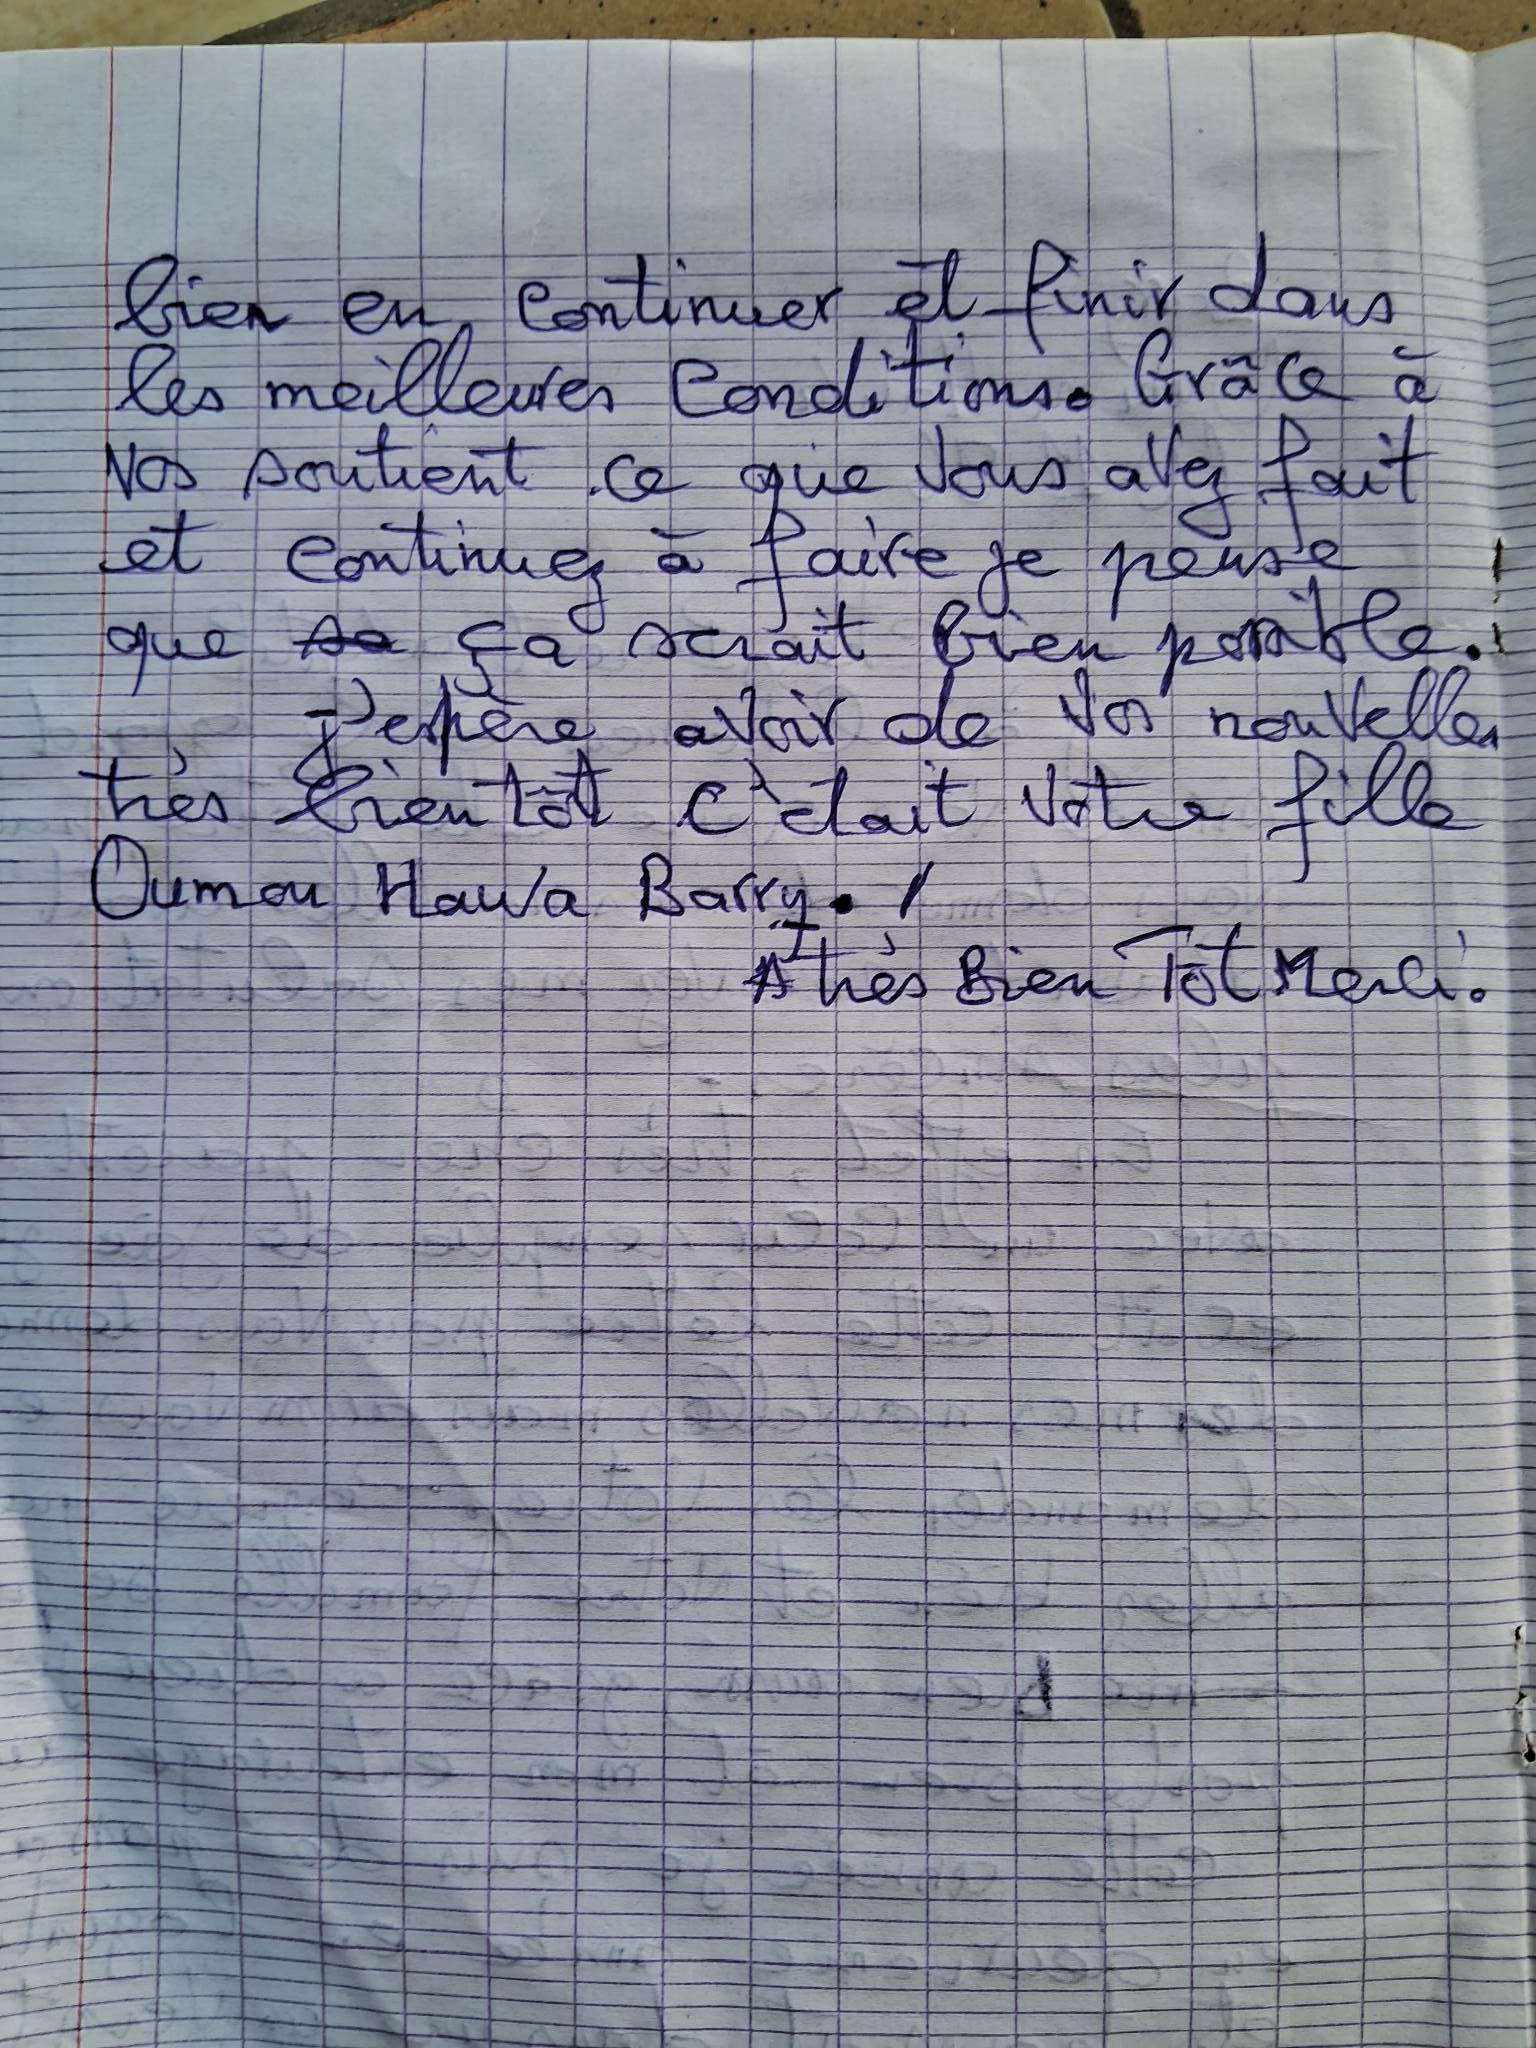 bien en continuer et finir dans
les meilleures conditions. Grâce à
vos soutient ce que vous avez fait
et continuez à faire je pense
que ça serait bien possible.
J'espère avoir de vos nouvelles
très bientôt c'était votre fille
Oumou Hawa Barry. /
A très Bien Tôt Merci.